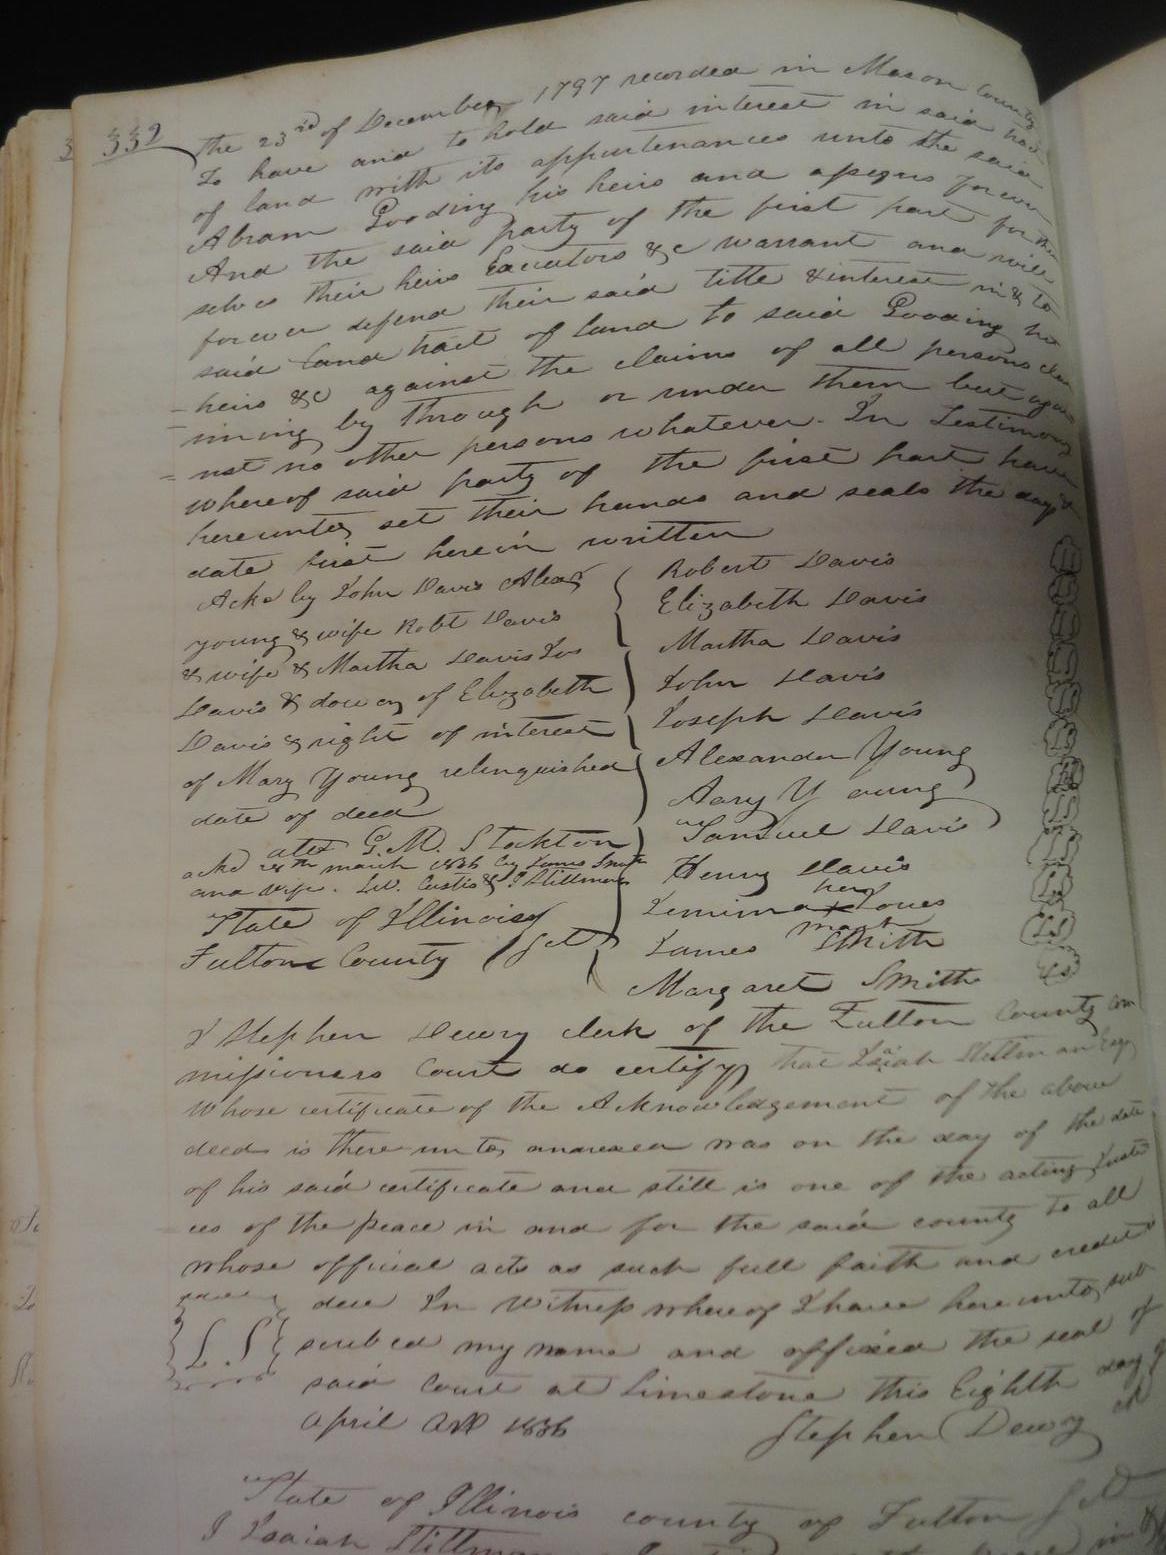 332
the 23rd of December 1797 recorded in Mason County
To have and to hold said interest in said
of land with its appurtenances unto the said
Abram Gooding his heirs and assigns forever
And the said party of the first part for them
selves their heirs Executors &c warrant and will
forever defend their said title & interest in & to
said land tract of land to said Gooding his
heirs &c against the claims of all persons clai
iming by through or under them but again
nst no other persons whatever. In Testimony
whereof said party of the first part have
hereunto set their hands and seals the day &
date first herein written
Ackd by John Davis Alexr
young & wife Robt Davis
& wife & Martha Davis Jos
Davis & dower of Elizabeth
Davis & right of interest
of Mary Young relinquished
date of deed
attx G. M. Stockton
ackd 28th march 1836 by James Smith
and wife. Lew. Curtis & I Stillman
State of Illinois
Fulton County Sct
Robert Davis LS
Elizabeth Davis LS
Martha Davis LS
John Davis LS
Joseph Davis LS
Alexander Young LS
Mary Young LS
Samuel Davis LS
Henry Davis LS
her
Jemima x Jones LS
mark
James Smith LS
Margaret Smith LS
I Stephen Dewy clerk of the Fulton County com
missioners Court do certify that Isaiah Stillman Esqr
whose certificate of the Acknowledgement of the above
deed is there unto annexed was on the day of the date
of his said certificate and still is one of the acting Justi
ces of the peace in and for the said county to all
whose official acts as such full faith and credit
L.S due In Witness whereof I have hereunto sub
scribed my name and affixed the seal of
said Court at Limestone this Eighth day of
April AD 1836
Stephen Dewy
State of Illinois county of Fulton Sct
I Isaiah Stillman